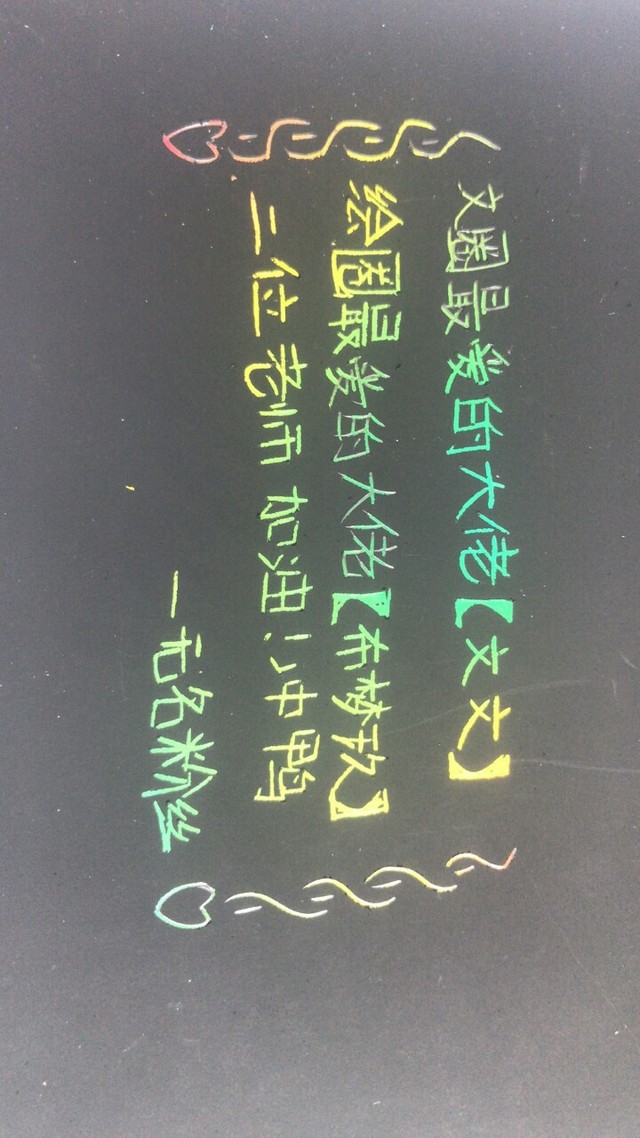 文圈最爱的大佬【文文】
绘圈最爱的大佬【布梦秋】
二位老师加油！冲鸭
一无名粉丝